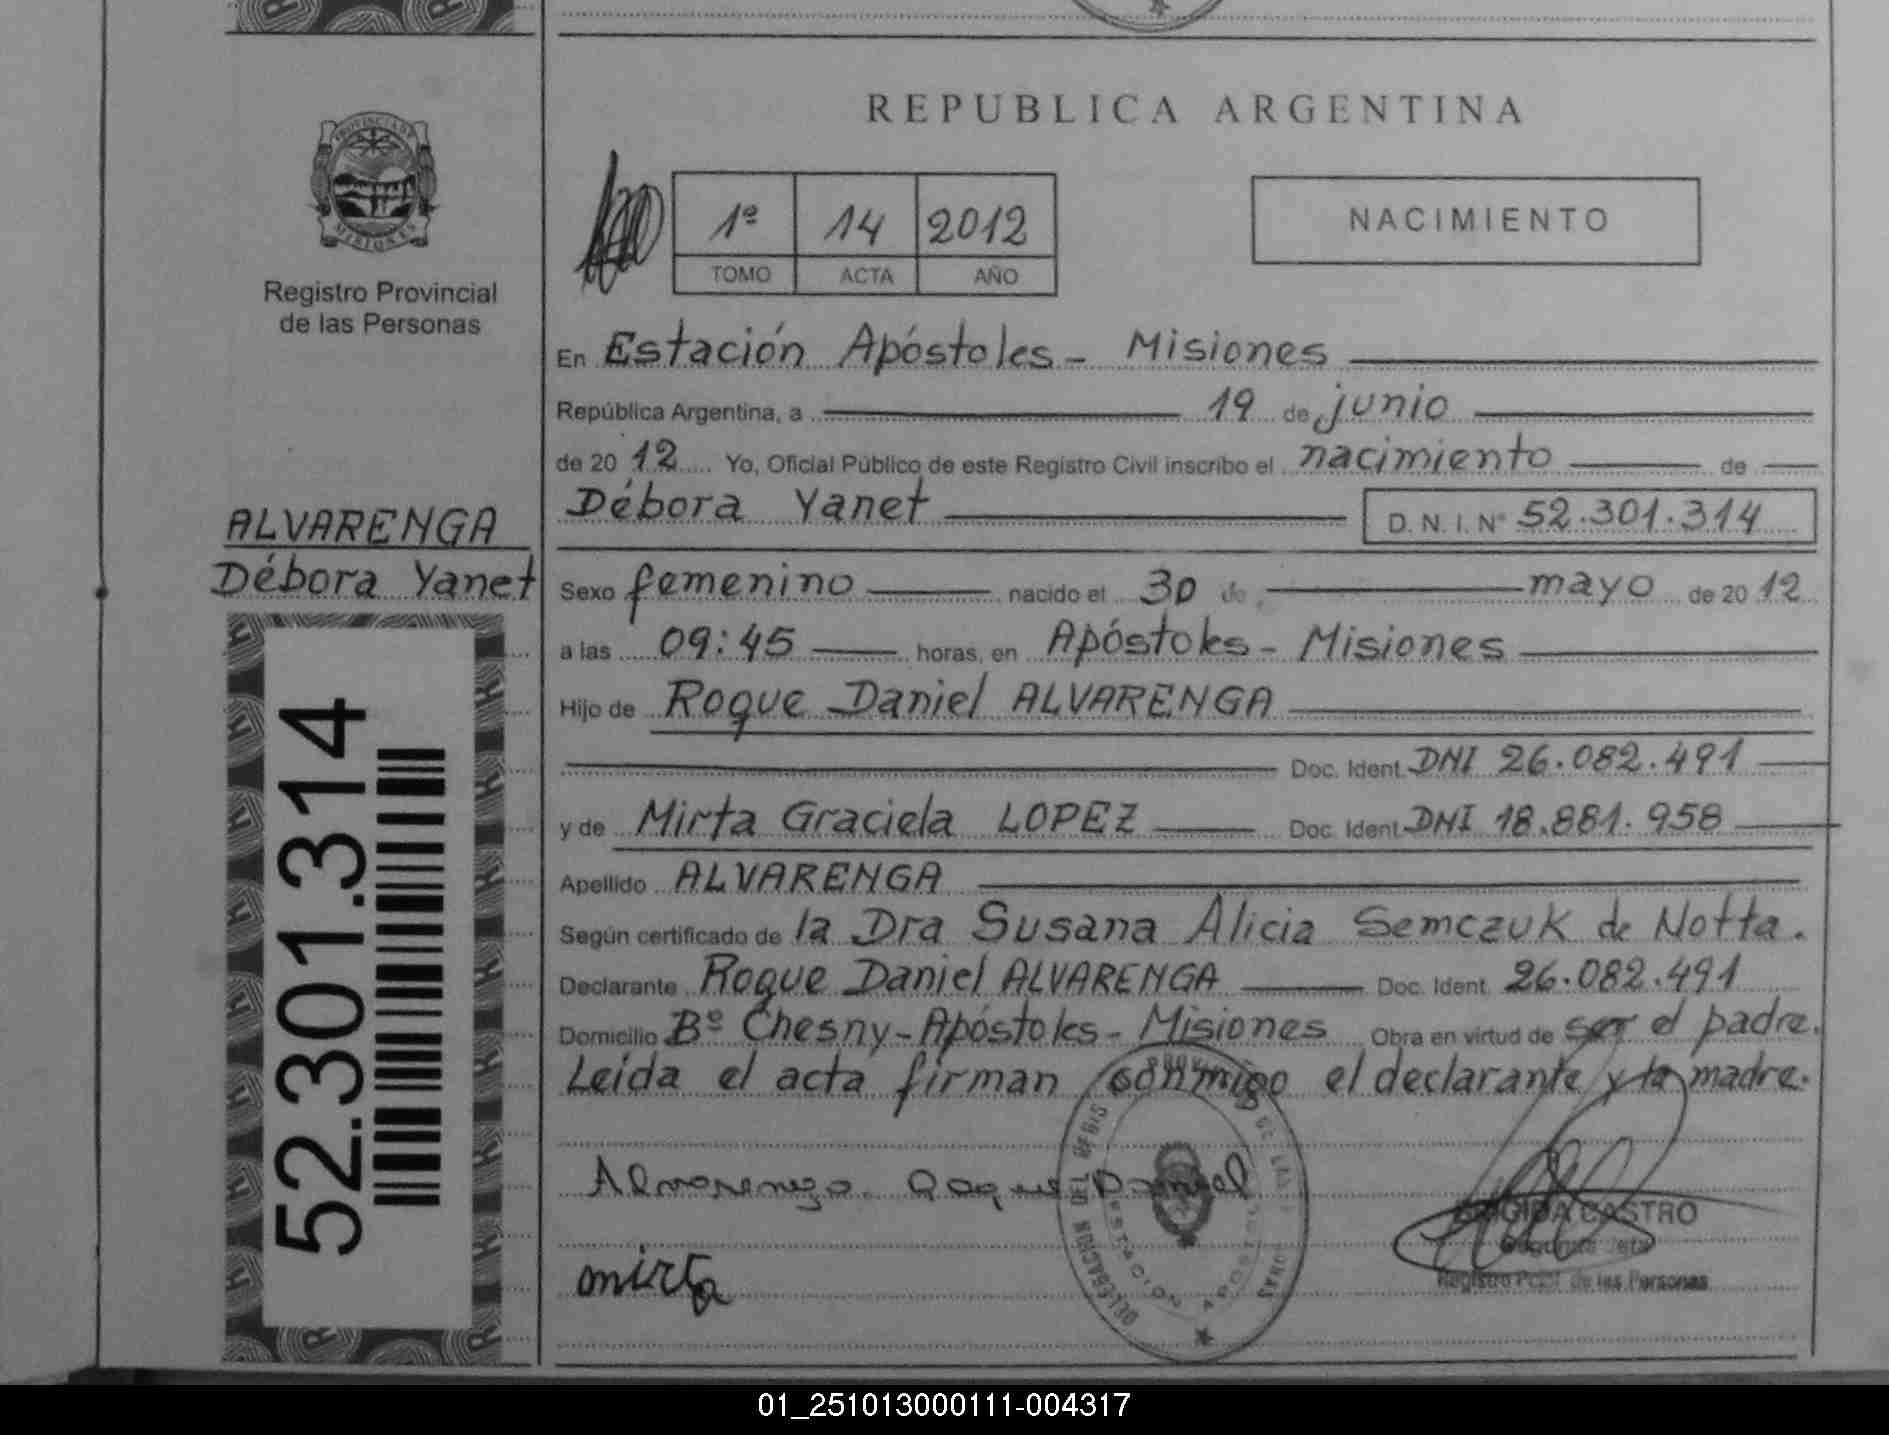 REPUBLICA ARGENTINA
PROVINCIA DE
MISIONES
Registro Provincial
de las Personas
1º 14 2012
TOMO ACTA AÑO
NACIMIENTO
En Estación Apóstoles - Misiones
República Argentina, a 19 de junio
de 20 12 Yo, Oficial Público de este Registro Civil inscribo el nacimiento de
Débora Yanet D. N. I. Nº 52.301.314
ALVARENGA
Débora Yanet
52.301.314
Sexo femenino nacido el 30 de mayo de 20 12
a las 09:45 horas, en Apóstoles - Misiones
Hijo de Roque Daniel ALVARENGA
Doc. Ident. DNI 26.082.491
y de Mirta Graciela LOPEZ Doc. Ident. DNI 18.881.958
Apellido ALVARENGA
Según certificado de la Dra Susana Alicia Semczuk de Notta.
Declarante Roque Daniel ALVARENGA Doc. Ident. 26.082.491
Domicilio Bº Chesny - Apóstoles - Misiones Obra en virtud de ser el padre.
Leída el acta firman conmigo el declarante y la madre.
Roque Daniel
mirta
DELEGACION DEL REGIS
ESTACION APOSTOLES
BRIGIDA CASTRO
Segunda Jefa
Registro Pcial. de las Personas
01_251013000111-004317